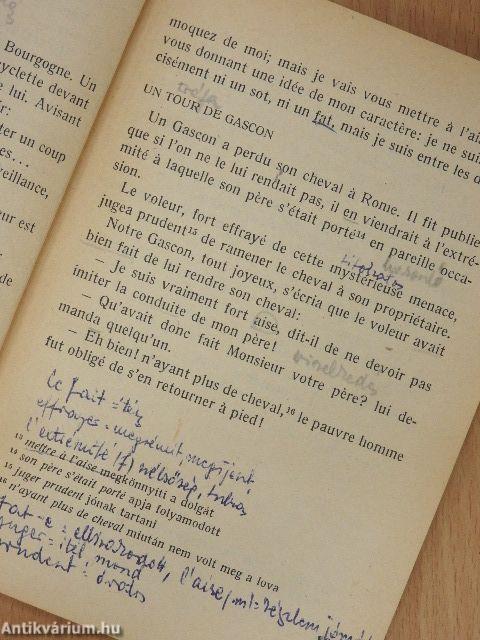 Bourgogne. Un
cyclette devant
e lui. Avisant
r:
ter un coup
s...
veillance,
eur est
moquez de moi; mais je vais vous mettre à l'ai
vous donnant une idée de mon caractère: je ne sui
cisément ni un sot, ni un fat, mais je suis entre les d
tréfa
UN TOUR DE GASCON
Un Gascon a perdu son cheval à Rome. Il fit publie
que si l'on ne le lui rendait pas, il en viendrait à l'extré-
mité à laquelle son père s'était porté¹⁴ en pareille occa-
sion.
Le voleur, fort effrayé de cette mystérieuse menace,
jugea prudent¹⁵ de ramener le cheval à son propriétaire.
titokzatos
Notre Gascon, tout joyeux, s'écria que le voleur avait
bien fait de lui rendre son cheval:
– Je suis vraiment fort aise, dit-il de ne devoir pas
imiter la conduite de mon père!
viselkedés
– Qu'avait donc fait Monsieur votre père? lui de-
manda quelqu'un.
– Eh bien! n'ayant plus de cheval,¹⁶ le pauvre homme
fut obligé de s'en retourner à pied!
le fait = tény
effrayé = megrémít, megijeszt
l'extrémité (f) végsőség, túlzás
¹³ mettre à l'aise megkönnyíti a dolgát
¹⁴ son père s'était porté apja folyamodott
¹⁵ juger prudent jónak tartani
¹⁶ n'ayant plus de cheval miután nem volt meg a lova
fat-e = elbizakodott, l'aise
juger = ítél, mond
prudent = óvatos
Antikvárium.hu